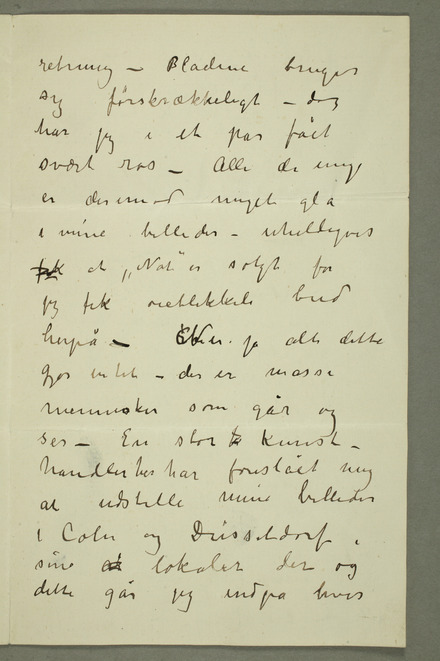 retning – Bladene bruger
sig förskrækkeligt – dog
har jeg i et par fåt
svært ros – Alle de unge
er derimod meget gla
i mine billeder – uheldigvis
fik at „Nat" er solgt for
jeg fik rietikkele bud
herpå – Men ja alt dette
gjør intet – der er masse
mennesker som går og
ser – En stor k Kunst–
handler her har foreslåt mig
at udstille mine billeder
i Cøln og Düsseldorf i
sine lokaler der og
dette går jeg indpå hvis